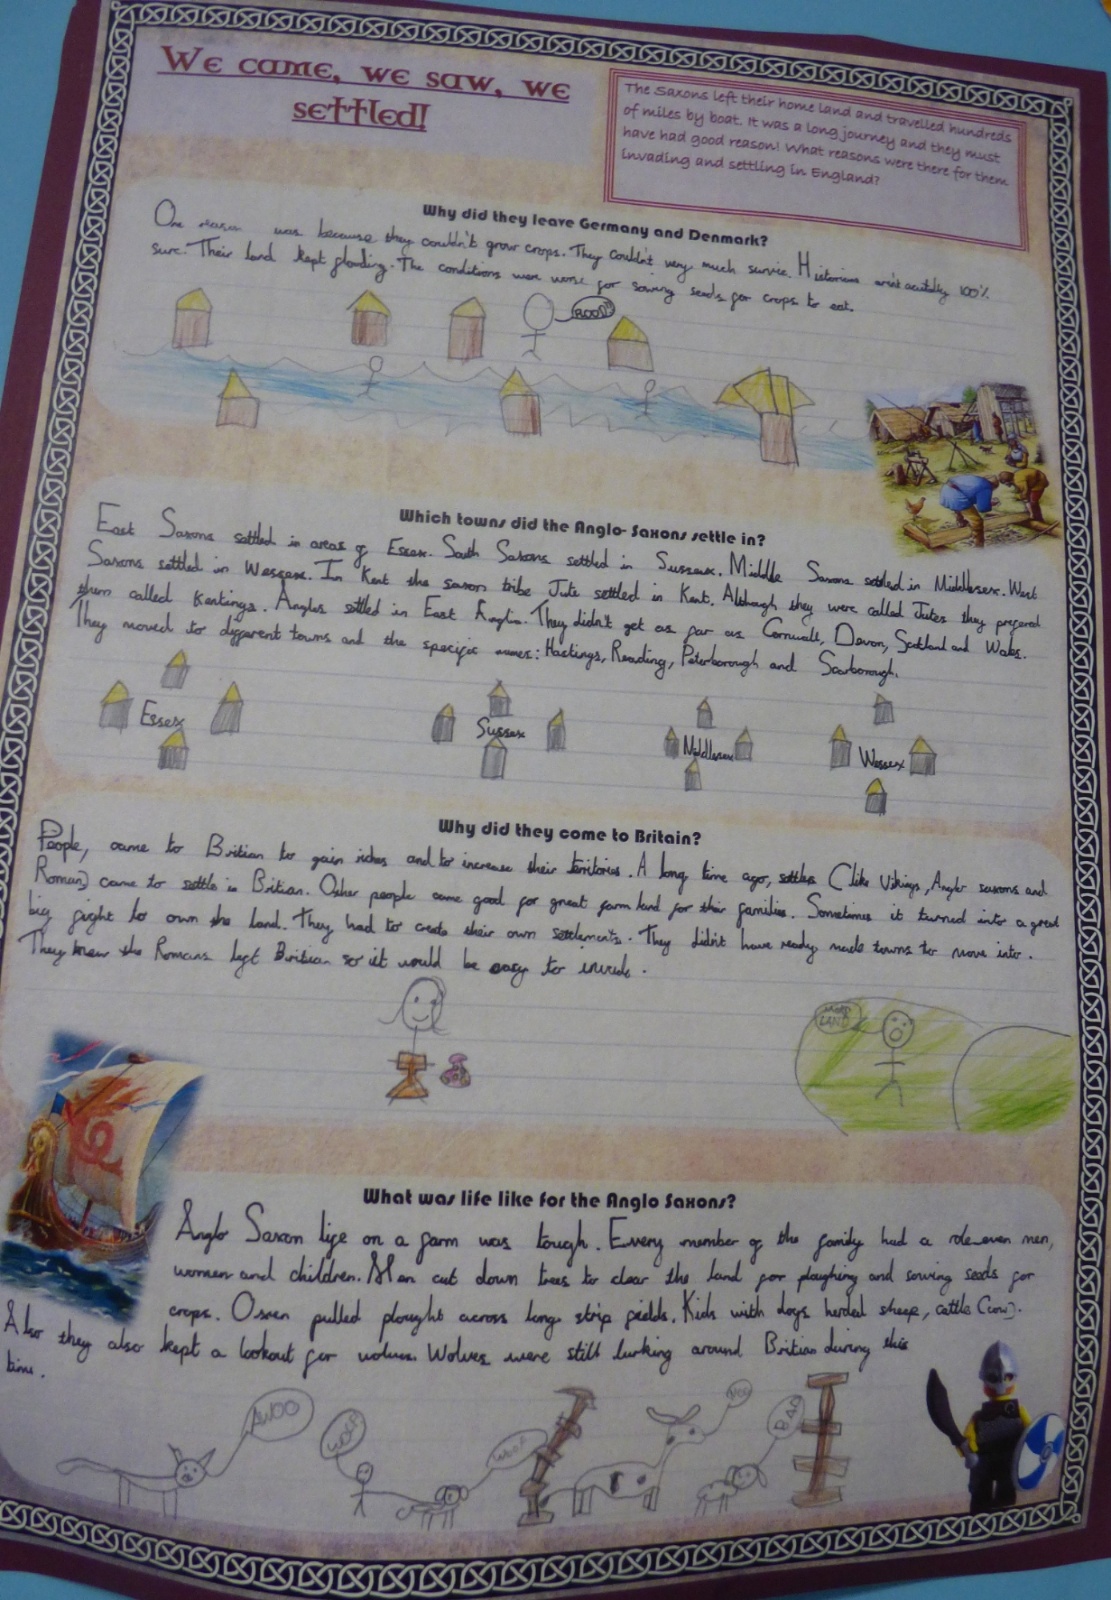 We came, we saw, we
settled!
The Saxons left their home land and travelled hundreds
of miles by boat. It was a long journey and they must
have had good reason! What reasons were there for them
invading and settling in England?
Why did they leave Germany and Denmark?
One reason was because they couldn't grow crops. They couldn't very much survie. Historians aren't acutally 100%
sure. Their land kept flooding. The conditions were worse for sowing seeds for crops to eat.
Which towns did the Anglo-Saxons settle in?
East Saxons settled in areas of Essex. South Saxons settled in Sussex. Middle Saxons settled in Middlesex. West
Saxons settled in Wessex. In Kent the saxon tribe Jute settled in Kent. Although they were called Jutes they prefered
them called Kentings. Angles settled in East Anglia. They didn't get as far as Cornwall, Devon, Scotland and Wales.
They moved to different towns and the specific names: Hastings, Reading, Peterborough and Scarborough.
Essex
Sussex
Middlesex
Wessex
Why did they come to Britain?
People, came to Britian to gain riches and to increase their territories. A long time ago, settlers (like Vikings, Anglo saxons and
Romans) came to settle in Britian. Other people came good for great farm land for their families. Sometimes it turned into a great
big fight to own the land. They had to create their own settlements. They didn't have ready made towns to move into.
They knew the Romans left Biritian so it would be easy to invade.
LAND
What was life like for the Anglo Saxons?
Anglo Saxon life on a farm was tough. Every member of the family had a role even men,
women and children. Men cut down trees to clear the land for ploughing and sowing seeds for
crops. Oxen pulled plought across long strip fields. Kids with dogs herded sheep, cattle (cow).
Also they also kept a lookout for wolves. Wolves were still lurking around Britian during this
time.
AWOO
WOLF
WOOF
MOO
BAA